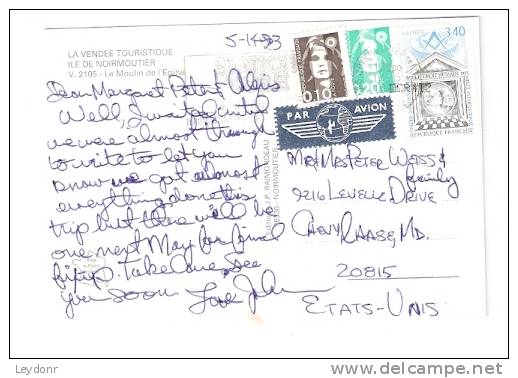 LA VENDEE TOURISTIQUE
ILE DE NOIRMOUTIER
V. 2105 - Le Moulin de l'Epine
5-14-93
Dear Margaret Peter & Alexis
Well, I waited until
we were almost through
to write to let you
know we got almost
everything done this
trip but there will be
one next May for final
fixup. Take care, see
you soon. Love John
0,10
3,20
LA POSTE
3,40
LE DROIT HUMAIN
REPUBLIQUE FRANÇAISE
PAR AVION
J.P. RAIMONDEAU
NOIRMOUTIER
Mr & Mrs Peter Weiss &
family
9216 Levelle Drive
Chevy Chase, Md.
20815
Etats-Unis
Leydonr
delcampe.net